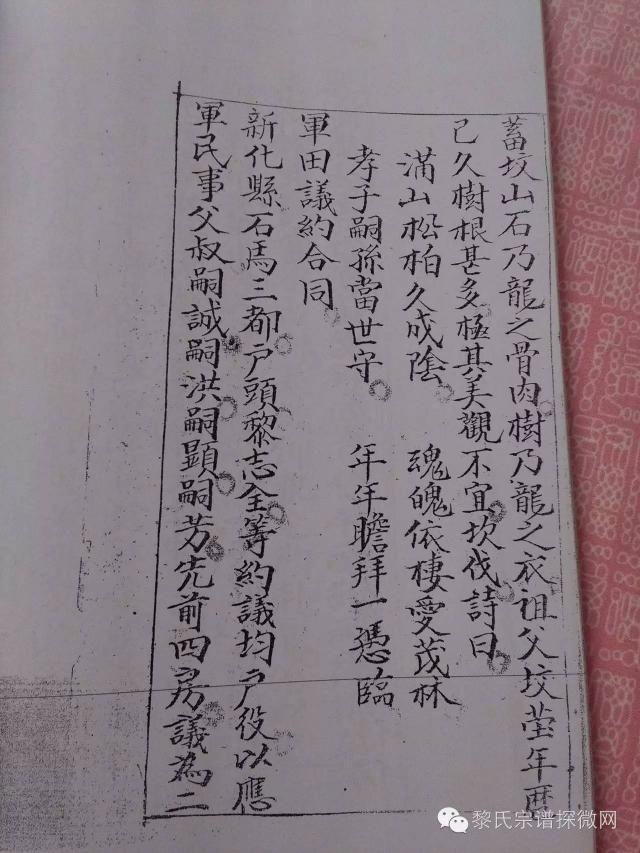 蓄坟山石乃龍之骨肉樹乃龍之衣祖父坟茔年歷
已久樹根甚多極其美觀不宜坎伐詩曰
滿山松柏久成陰 魂魄依棲愛茂林
孝子嗣孫當世守 年年瞻拜一憑臨
軍田議約合同
新化縣石馬三都户頭黎志全等約議均户役以應
軍民事父叔嗣誠嗣洪嗣顕嗣芳先前四房議為二
黎氏宗谱探微网